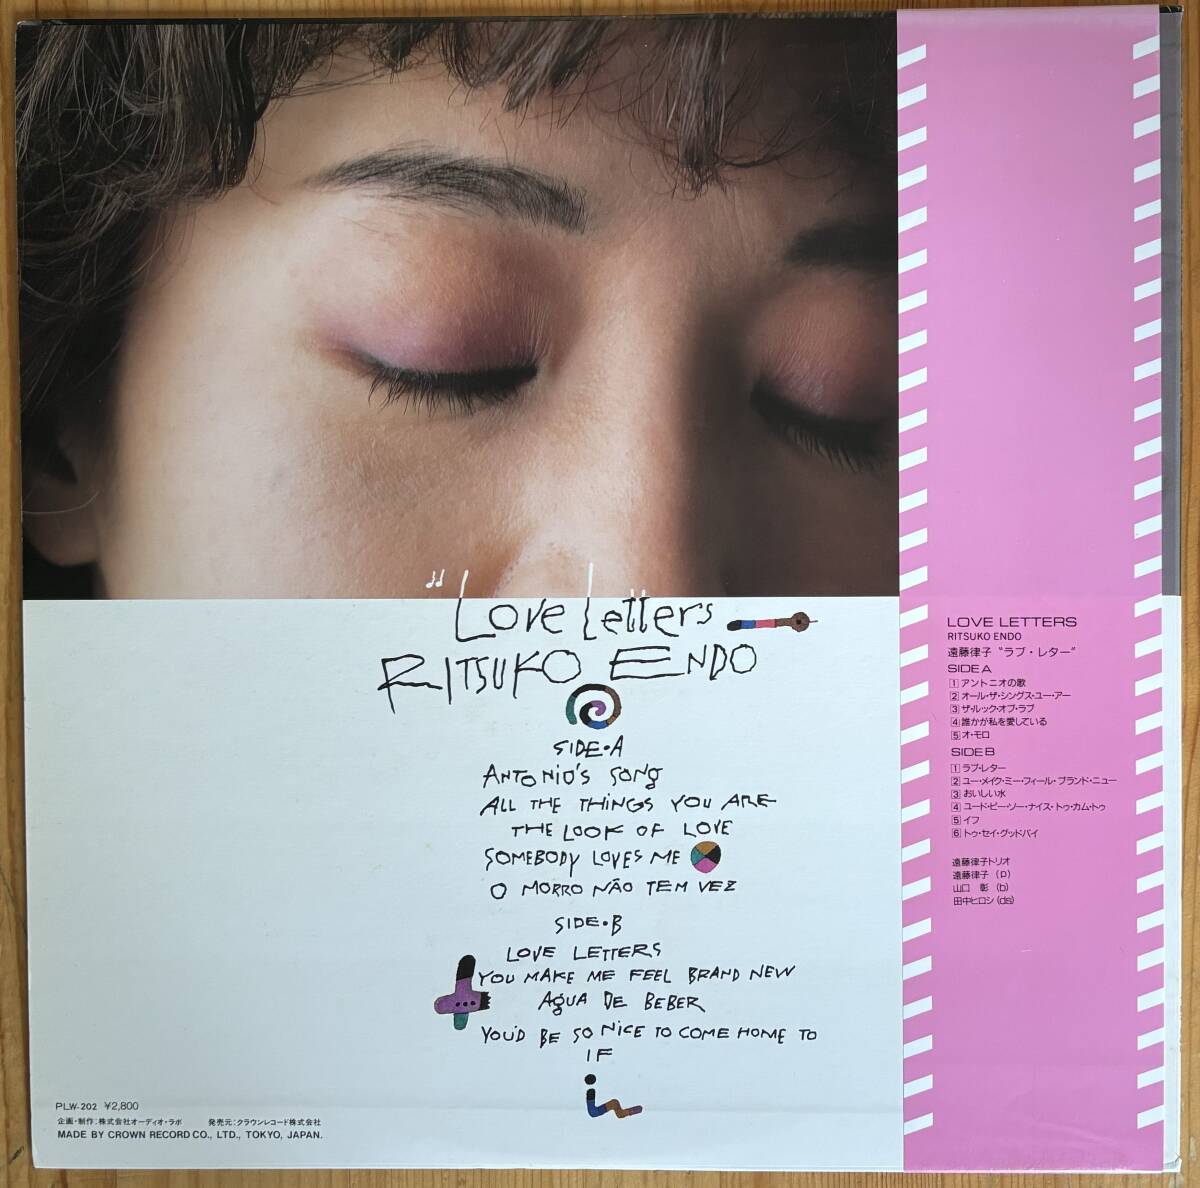 "Love Letters
RITSUKO ENDO
SIDE•A
ANTONIO'S SONG
ALL THE THINGS YOU ARE
THE LOOK OF LOVE
SOMEBODY LOVES ME
O MORRO NÃO TEM VEZ
SIDE•B
LOVE LETTERS
YOU MAKE ME FEEL BRAND NEW
AGUA DE BEBER
YOU'D BE SO NICE TO COME HOME TO
IF
PLW-202 ¥2,800
企画・制作:株式会社オーディオ・ラボ 発売元:クラウンレコード株式会社
MADE BY CROWN RECORD CO., LTD., TOKYO, JAPAN.
LOVE LETTERS
RITSUKO ENDO
遠藤律子 “ラブ・レター”
SIDE A
1 アントニオの歌
2 オール・ザ・シングス・ユー・アー
3 ザ・ルック・オブ・ラブ
4 誰かが私を愛している
5 オ・モロ
SIDE B
1 ラブ・レター
2 ユー・メイク・ミー・フィール・ブランド・ニュー
3 おいしい水
4 ユード・ビー・ソー・ナイス・トゥ・カム・トゥ
5 イフ
6 トゥ・セイ・グッドバイ
遠藤律子トリオ
遠藤律子 (p)
山口 彰 (b)
田中ヒロシ (ds)